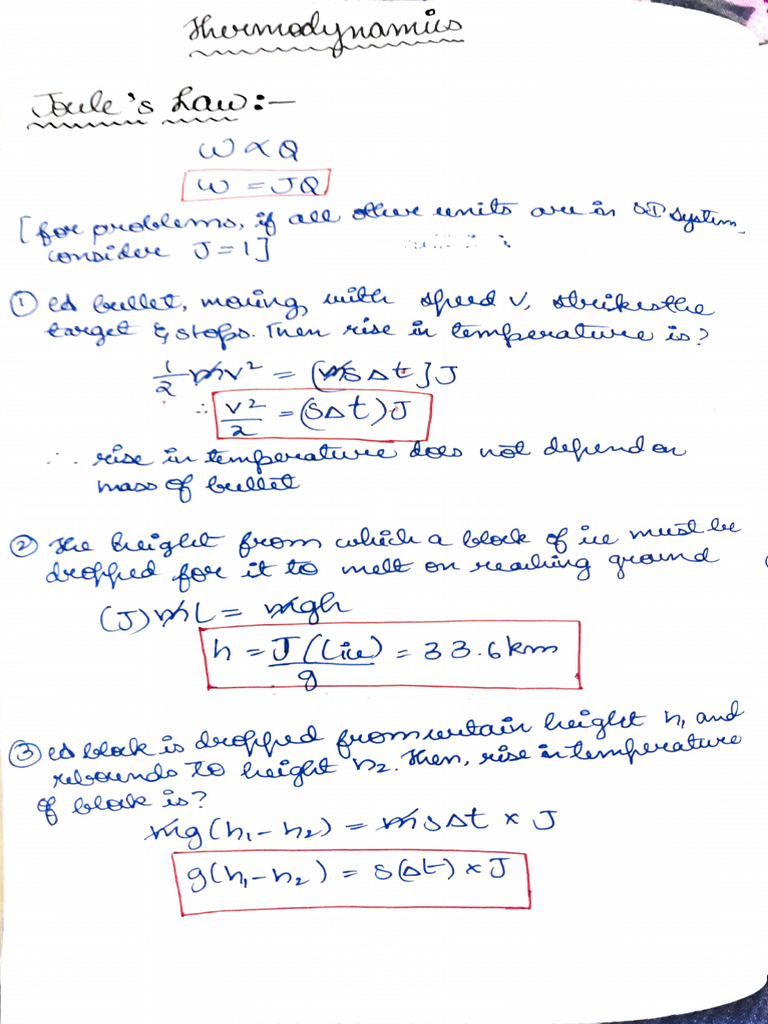 Thermodynamics
Joule's Law:-
W ∝ Q
W = JQ
[for problems, if all other units are in SI system,
consider J = 1]
① A bullet, moving, with speed v, strikes the
target & stops. Then rise in temperature is?
1/2 mv² = (msΔt] J
∴ v²/2 = (sΔt) J
∴ rise in temperature does not depend on
mass of bullet
② The height from which a block of ice must be
dropped for it to melt on reaching ground
(J) mL = mgh
h = J(Lice)/g = 33.6 km
③ A block is dropped from certain height h₁ and
rebounds to height h₂. Then, rise in temperature
of block is?
mg(h₁-h₂) = msΔt × J
g(h₁-h₂) = s(Δt) × J